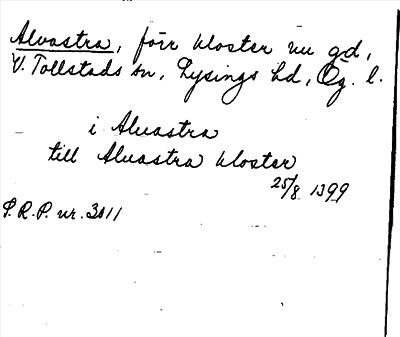 Alvastra, förr kloster nu gd,
V. Tollstads sn, Lysings hd, Ög. l.
i Alvastra
till Alvastra kloster
25/8 1399
S.R.P. nr. 3011